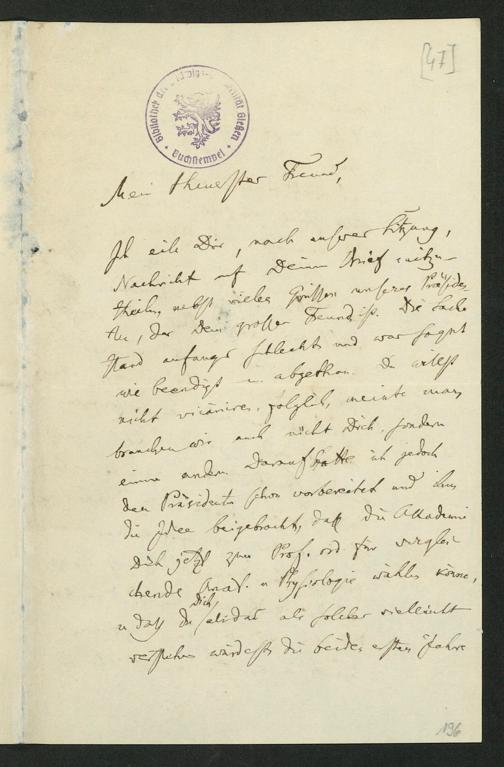 [47]
Bibliothek der Ludwigs-Universität Gießen
Buchstempel
Mein theuerster Freund,
Ich eile Dir, nach unserer Sitzung,
Nachricht auf Deinen Brief mitzu-
theilen, nebst vielen Grüßen unseres Präsiden-
ten, der Dein großer Freund ist. Die Sache
stand anfangs schlecht und war sogut
wie beendigt u. abgethan. Du willst
nicht vicariren, folglich, meinte man,
brauchen wir auch nicht Dich, sondern
einen andern. Darauf hatte ich jedoch
den Präsidenten schon vorbereitet und ihm
die Idee beigebracht, daß die Akademie
Dich jetzt zum Prof. ord. für verglei-
chende Anat. u Physiologie wählen könne,
u daß Du Dich als solcher vielleicht
verstehen würdest die beiden ersten Jahre
196